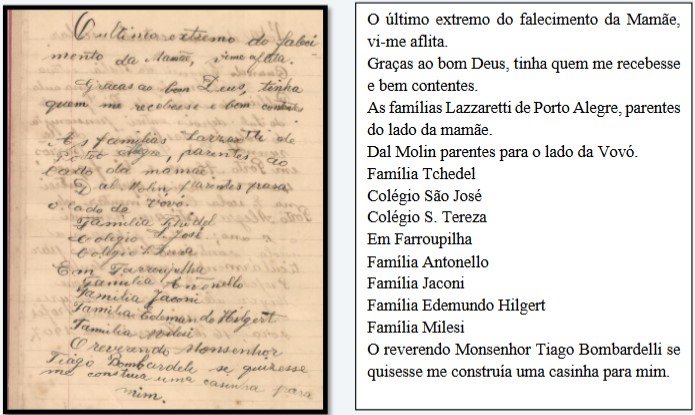 O ultimo extremo do faleci-
mento da Mamãe, vi-me aflita.
Graças ao bom Deus, tinha
quem me recebesse e bem contentes
As famílias Lazzaretti de
Porto Alegre, parentes ao
lado da mamãe
Dal Molin, parentes para
o lado da Vóvó.
Familia Tchedel
Colegio S. José.
Colegio S. Tereza
Em Farroupilha
Familia Antonello
Familia Jaconi
Familia Edemundo Hilgert
Familia Milesi
O reverendo Monsenhor
Tiago Bombardele se quizesse
me construia uma casinha para
mim.
O último extremo do falecimento da Mamãe,
vi-me aflita.
Graças ao bom Deus, tinha quem me recebesse
e bem contentes.
As famílias Lazzaretti de Porto Alegre, parentes
do lado da mamãe.
Dal Molin parentes para o lado da Vovó.
Família Tchedel
Colégio São José
Colégio S. Tereza
Em Farroupilha
Família Antonello
Família Jaconi
Família Edemundo Hilgert
Família Milesi
O reverendo Monsenhor Tiago Bombardelli se
quisesse me construía uma casinha para mim.